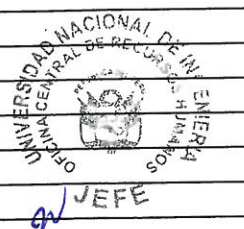 UNIVERSIDAD NACIONAL DE INGENIERIA
OFICINA CENTRAL DE RECURSOS HUMANOS
REPUBLICA DEL PERU
JEFE